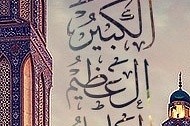 الكبير
العظيم